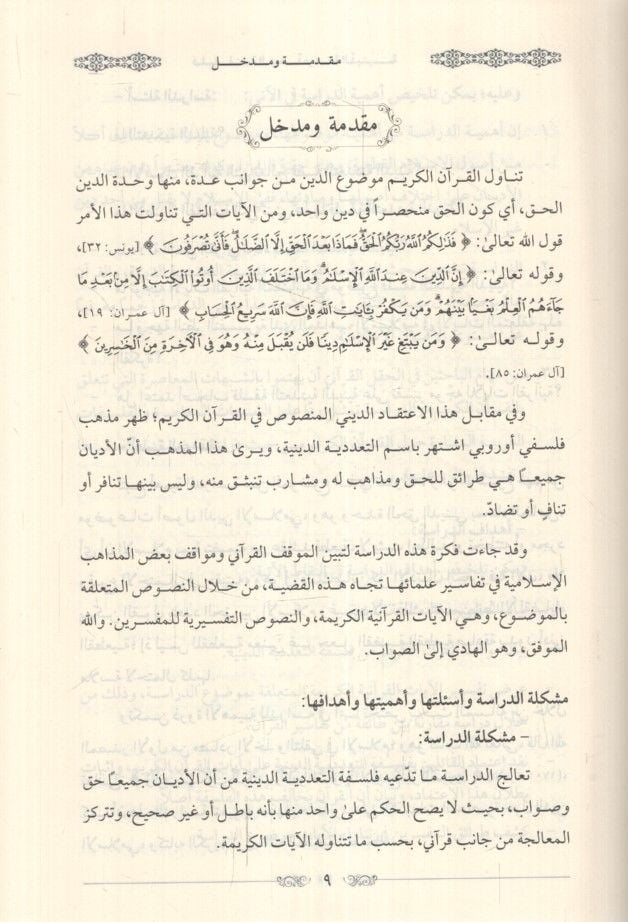 مقدمة ومدخل
مقدمة ومدخل
تناول القرآن الكريم موضوع الدين من جوانب عدة، منها وحدة الدين
الحق، أي كون الحق منحصراً في دين واحد، ومن الآيات التي تناولت هذا الأمر
قول الله تعالىٰ: ﴿ فَذَٰلِكُمُ اللَّهُ رَبُّكُمُ الْحَقُّ ۖ فَمَاذَا بَعْدَ الْحَقِّ إِلَّا الضَّلَالُ ۖ فَأَنَّىٰ تُصْرَفُونَ ﴾ [يونس: ٣٢]،
وقوله تعالىٰ: ﴿ إِنَّ الدِّينَ عِندَ اللَّهِ الْإِسْلَامُ ۗ وَمَا اخْتَلَفَ الَّذِينَ أُوتُوا الْكِتَابَ إِلَّا مِن بَعْدِ مَا
جَاءَهُمُ الْعِلْمُ بَغْيًا بَيْنَهُمْ ۗ وَمَن يَكْفُرْ بِآيَاتِ اللَّهِ فَإِنَّ اللَّهَ سَرِيعُ الْحِسَابِ ﴾ [آل عمران: ١٩]،
وقوله تعالىٰ: ﴿ وَمَن يَبْتَغِ غَيْرَ الْإِسْلَامِ دِينًا فَلَن يُقْبَلَ مِنْهُ وَهُوَ فِي الْآخِرَةِ مِنَ الْخَاسِرِينَ ﴾
[آل عمران: ٨٥].
وفي مقابل هذا الاعتقاد الديني المنصوص في القرآن الكريم؛ ظهر مذهب
فلسفي أوروبي اشتهر باسم التعددية الدينية، ويرىٰ هذا المذهب أنّ الأديان
جميعاً هي طرائق للحق ومذاهب له ومشارب تنبثق منه، وليس بينها تنافر أو
تنافٍ أو تضادّ.
وقد جاءت فكرة هذه الدراسة لتبين الموقف القرآني ومواقف بعض المذاهب
الإسلامية في تفاسير علمائها تجاه هذه القضية، من خلال النصوص المتعلقة
بالموضوع، وهي الآيات القرآنية الكريمة، والنصوص التفسيرية للمفسرين. والله
الموفق، وهو الهادي إلىٰ الصواب.
مشكلة الدراسة وأسئلتها وأهميتها وأهدافها:
– مشكلة الدراسة:
تعالج الدراسة ما تدّعيه فلسفة التعددية الدينية من أن الأديان جميعاً حق
وصواب، بحيث لا يصح الحكم علىٰ واحد منها بأنه باطل أو غير صحيح، وتتركز
المعالجة من جانب قرآني، بحسب ما تتناوله الآيات الكريمة.
٩